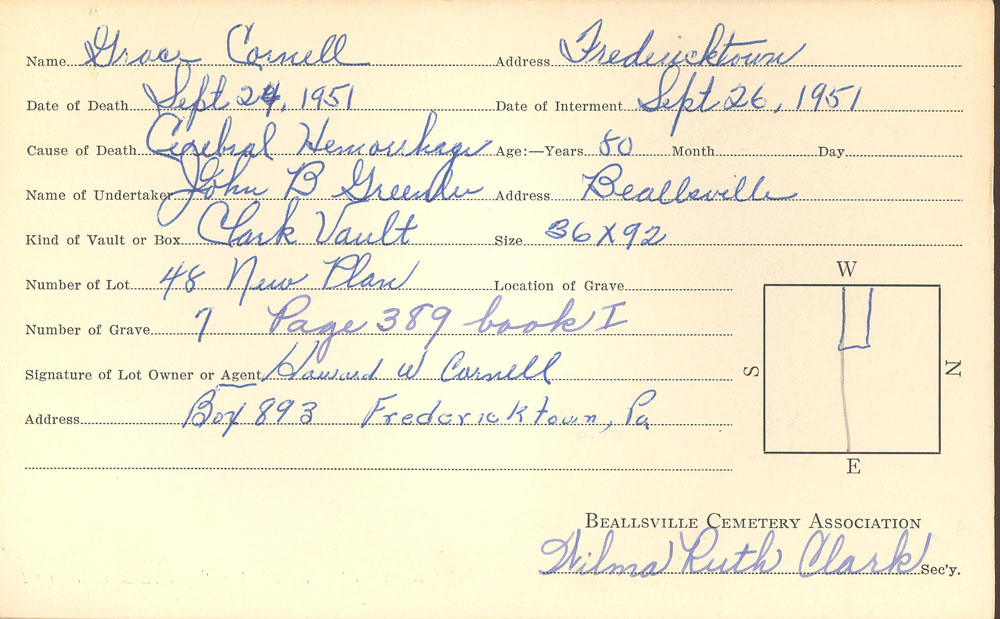 Name Grace Cornell Address Fredericktown
Date of Death Sept 24, 1951 Date of Interment Sept 26, 1951
Cause of Death Cerebral Hemorrhage Age:—Years 80 Month Day
Name of Undertaker John B Greenlee Address Beallsville
Kind of Vault or Box Clark Vault Size 36X92
Number of Lot 48 New Plan Location of Grave
Number of Grave 7 Page 389 book I
Signature of Lot Owner or Agent Howard W Cornell
Address Box 893 Fredericktown, Pa
W
S
N
E
BEALLSVILLE CEMETERY ASSOCIATION
Wilma Ruth Clark Sec'y.